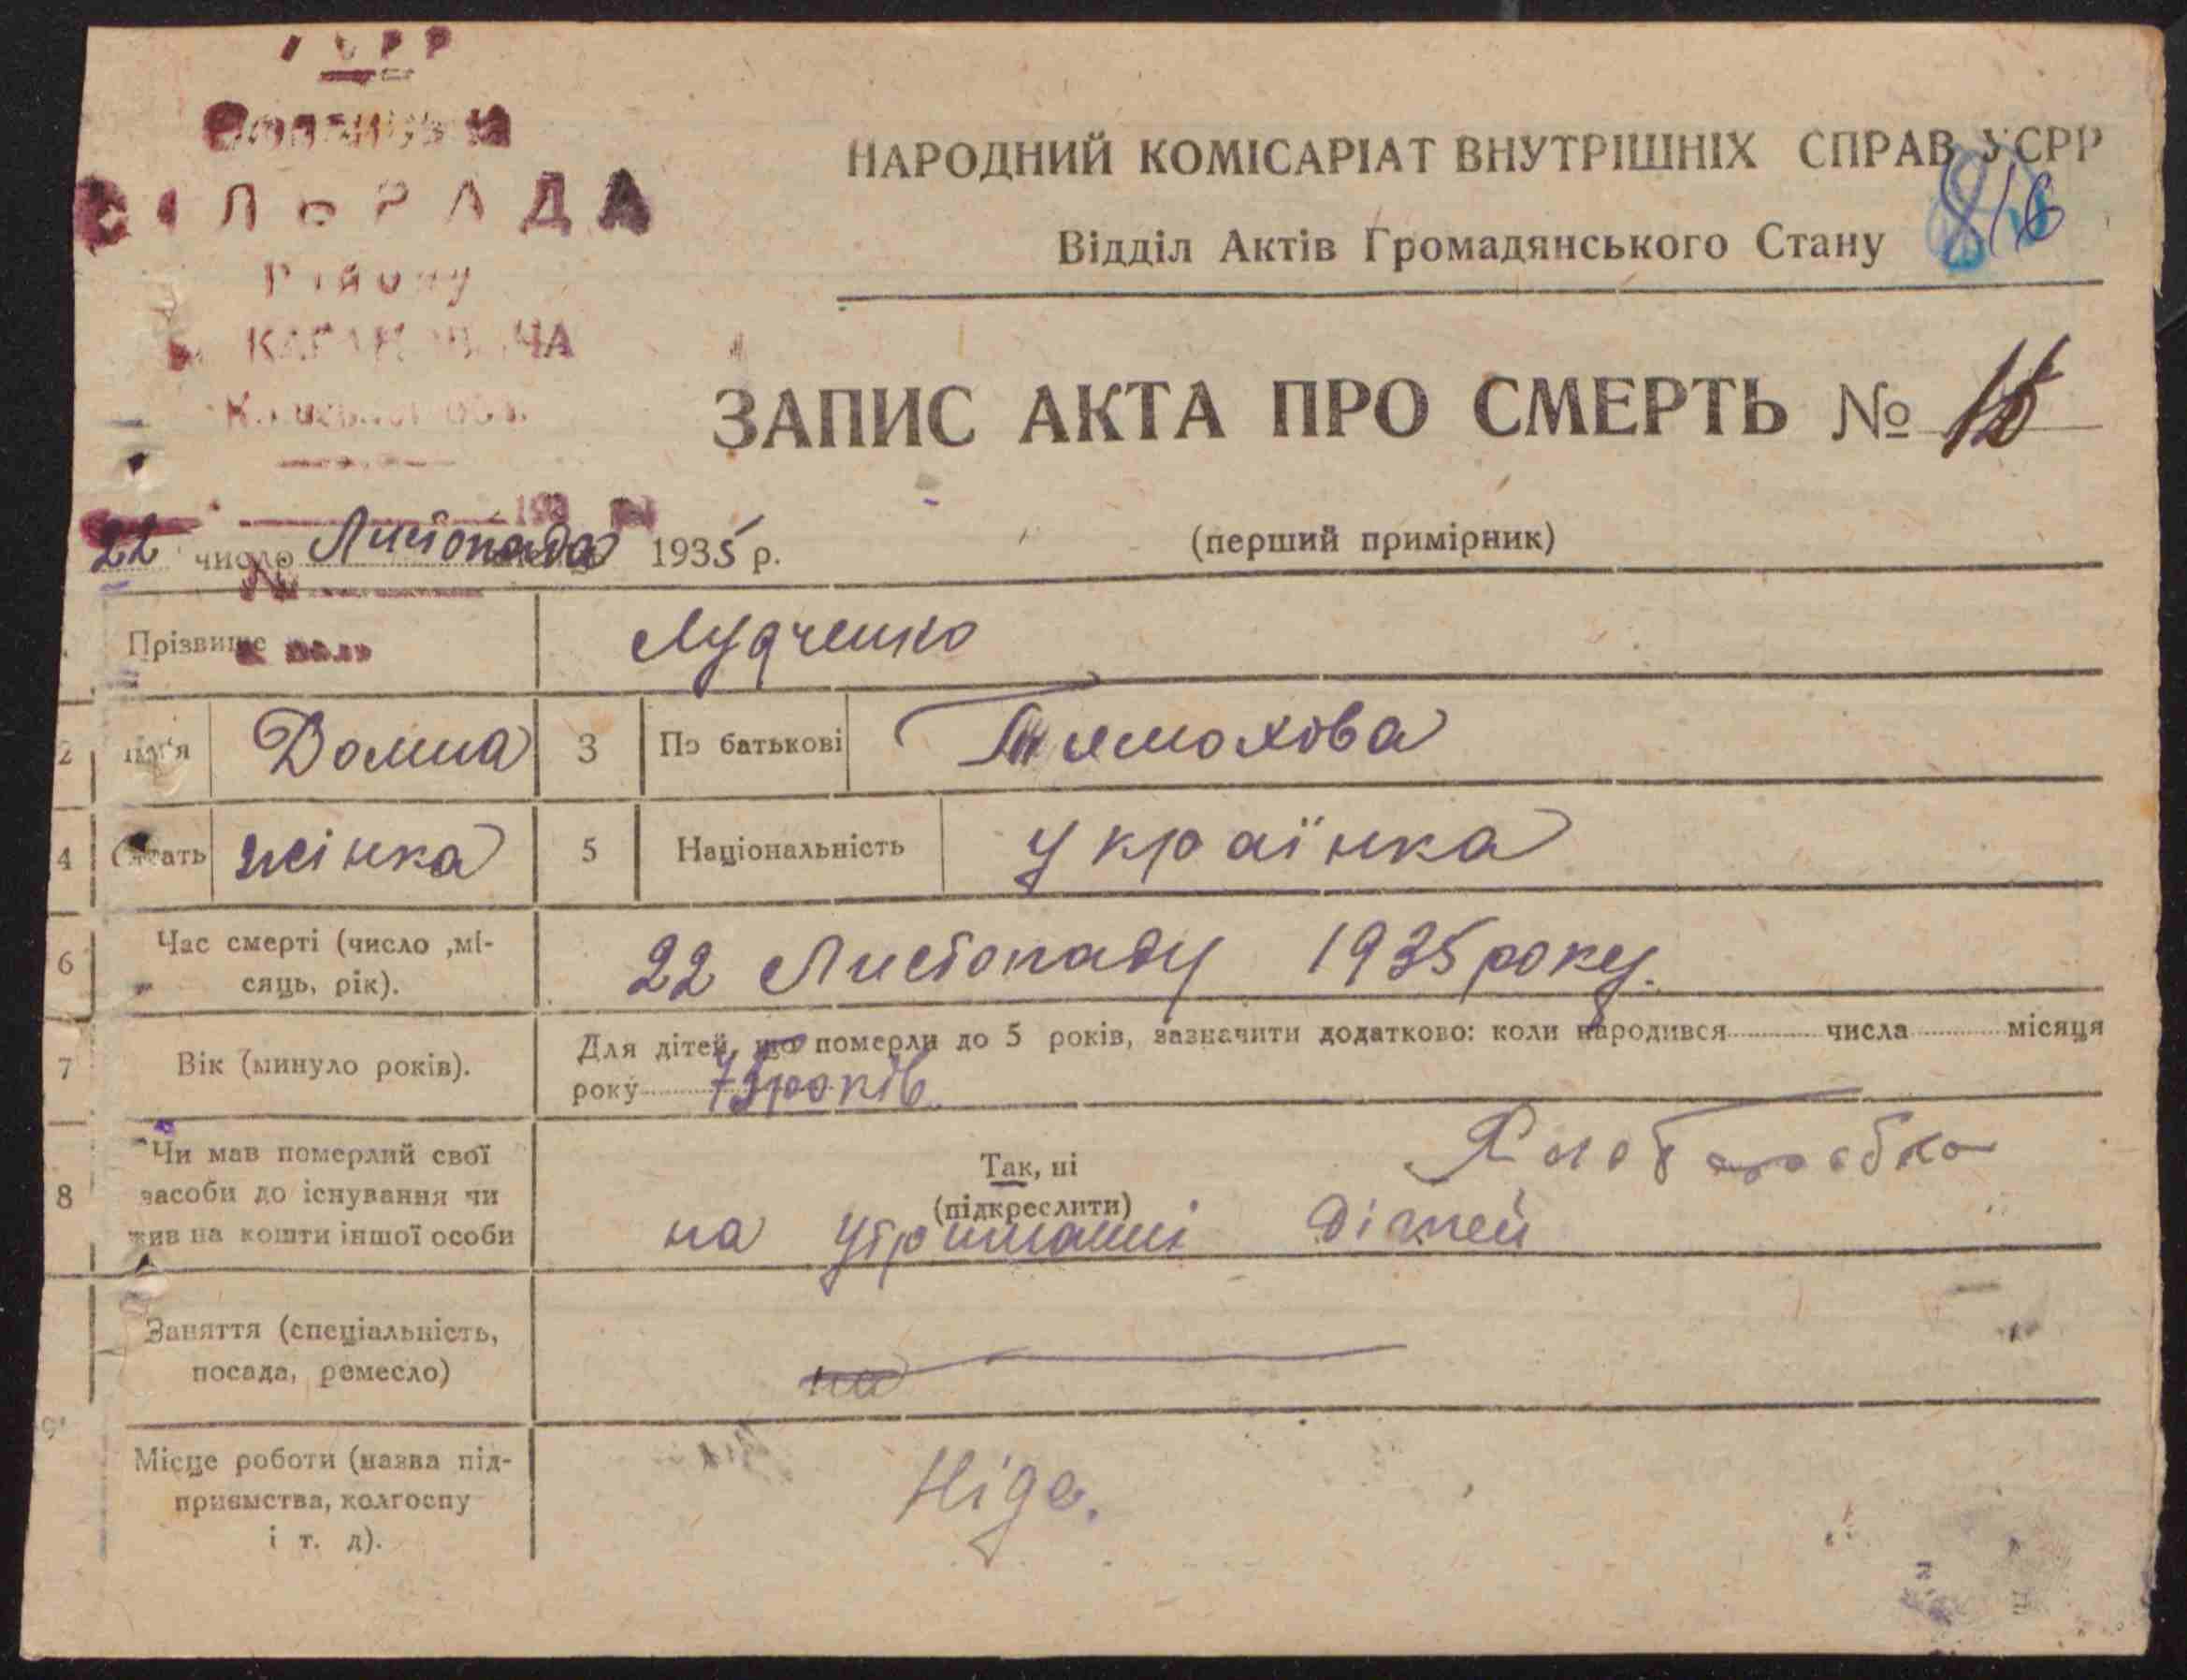 УСРР
СІЛЬРАДА
Району
КАГАНОВИЧА
НАРОДНИЙ КОМІСАРІАТ ВНУТРІШНІХ СПРАВ УСРР
Відділ Актів Громадянського Стану
ЗАПИС АКТА ПРО СМЕРТЬ №
22 число Листопада 1935 р.
(перший примірник)
Прізвище Лудченко
2 Ім'я Домна 3 По батькові Тимохова
4 Стать жінка 5 Національність Українка
6 Час смерті (число ,мі-
сяць, рік). 22 Листопаду 1935 року.
7 Вік (минуло років). Для дітей, що померли до 5 років, зазначити додатково: коли народився числа місяця
року 75 років
8 Чи мав померлий свої
засоби до існування чи
жив на кошти іншої особи
Так, ні
(підкреслити)
на утриманні дітей
Заняття (спеціальність,
посада, ремесло)
9 Місце роботи (назва під-
приємства, колгоспу
і т. д).
Ніде.